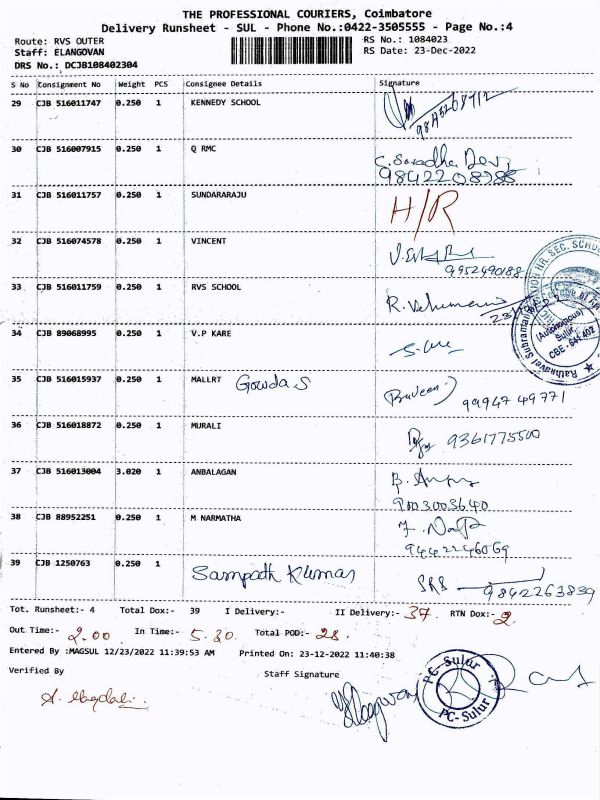 THE PROFESSIONAL COURIERS, Coimbatore
Delivery Runsheet - SUL - Phone No.:0422-3505555 - Page No.:4
Route: RVS OUTER
Staff: ELANGOVAN
DRS No.: DCJB108402304
RS No.: 1084023
RS Date: 23-Dec-2022
S No Consignment No Weight PCS Consignee Details Signature
29 CJB 516011747 0.250 1 KENNEDY SCHOOL
30 CJB 516007915 0.250 1 Q RMC
31 CJB 516011757 0.250 1 SUNDARARAJU H/R
32 CJB 516074578 0.250 1 VINCENT
9952490188
33 CJB 516011759 0.250 1 RVS SCHOOL
34 CJB 89068995 0.250 1 V.P KARE
35 CJB 516015937 0.250 1 MALLRT Gowda.S Praveen 99947 49771
36 CJB 516018872 0.250 1 MURALI 9361775500
37 CJB 516013004 3.020 1 ANBALAGAN
9003003640
38 CJB 88952251 0.250 1 M NARMATHA
9442246069
39 CJB 1250763 0.250 1 Sampath Kumar SRS 9842263839
(Autonomous)
Sulur
CBE-641 402
Tot. Runsheet:- 4 Total Dox:- 39 I Delivery:- II Delivery:- 37. RTN Dox:- 2.
Out Time:- 2.00 In Time:- 5.30. Total POD:- 28.
Entered By :MAGSUL 12/23/2022 11:39:53 AM Printed On: 23-12-2022 11:40:38
Verified By Staff Signature
PC-Sulur
PC-Sulur